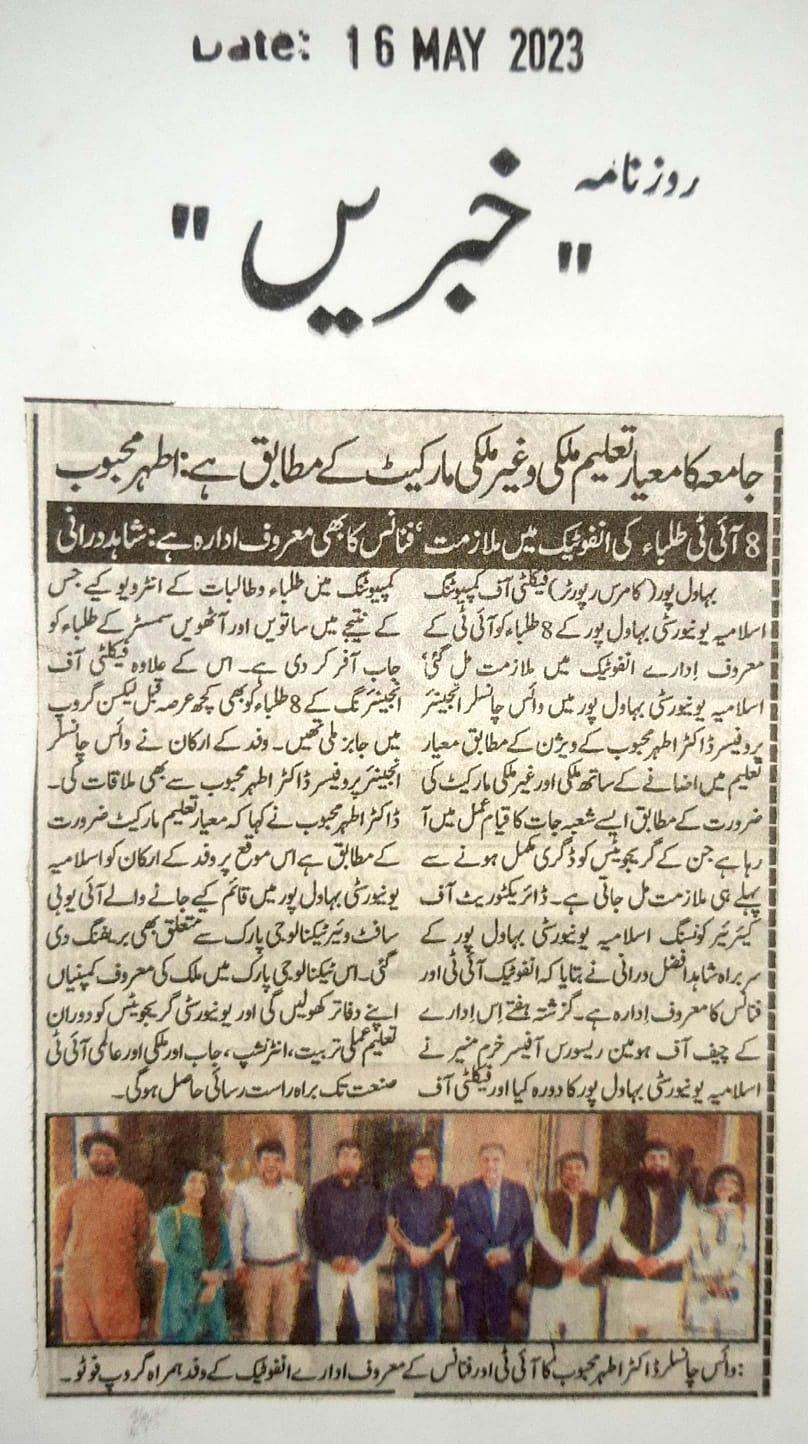 Date: 16 MAY 2023
روزنامہ
"خبریں"
جامعہ کا معیار تعلیم ملکی وغیر ملکی مارکیٹ کے مطابق ہے: اطہر محبوب
8 آئی ٹی طلباء کی انفوٹیک میں ملازمت، فنانس کا بھی معروف ادارہ ہے: شاہد درانی
بہاول پور (کامرس رپورٹر) فیکلٹی آف کمپیوٹنگ
اسلامیہ یونیورسٹی بہاول پور کے 8 طلباء کو آئی ٹی کے
معروف ادارے انفوٹیک میں ملازمت مل گئی،
اسلامیہ یونیورسٹی بہاول پور میں وائس چانسلر انجینئر
پروفیسر ڈاکٹر اطہر محبوب کے ویژن کے مطابق معیار
تعلیم میں اضافے کے ساتھ ملکی اور غیر ملکی مارکیٹ کی
ضرورت کے مطابق ایسے شعبہ جات کا قیام عمل میں آ
رہا ہے جن کے گریجوئٹس کو ڈگری مکمل ہونے سے
پہلے ہی ملازمت مل جاتی ہے۔ ڈائریکٹوریٹ آف
کیرئیر کونسنگ اسلامیہ یونیورسٹی بہاول پور کے
سربراہ شاہد افضل درانی نے بتایا کہ انفوٹیک آئی ٹی اور
فنانس کا معروف ادارہ ہے۔ گزشتہ ہفتے اِس اِدارے
کے چیف آف ہیومین ریسورس آفیسر خرم منیر نے
اسلامیہ یونیورسٹی بہاول پور کا دورہ کیا اور فیکلٹی آف
کمپیوٹنگ میں طلباء وطالبات کے انٹرویو کیے جس
کے نتیجے میں ساتویں اور آٹھویں سمسٹر کے طلباء کو
جاب آفر کر دی ہے۔ اس کے علاوہ فیکلٹی آف
انجینئرنگ کے 8 طلباء کو بھی کچھ عرصہ قبل نیکسن گروپ
میں جابز ملی تھیں۔ وفد کے ارکان نے وائس چانسلر
انجینئر پروفیسر ڈاکٹر اطہر محبوب سے بھی ملاقات کی۔
ڈاکٹر اطہر محبوب نے کہا کہ معیار تعلیم مارکیٹ ضرورت
کے مطابق ہے اس موقع پر وفد کے ارکان کو اسلامیہ
یونیورسٹی بہاول پور میں قائم کیے جانے والے آئی یو بی
سافٹ وئیر ٹیکنالوجی پارک سے متعلق بھی بریفنگ دی
گئی۔ اس ٹیکنالوجی پارک میں ملک کی معروف کمپنیاں
اپنے دفاتر کھولیں گی اور یونیورسٹی گریجوئیٹس کو دوران
تعلیم عملی تربیت، انٹرنشپ، جاب اور ملکی اور عالمی آئی ٹی
صنعت تک براہ راست رسائی حاصل ہوگی۔
: وائس چانسلر ڈاکٹر اطہر محبوب کا آئی ٹی اور فنانس کے معروف ادارے انفوٹیک کے وفد ہمراہ گروپ فوٹو۔